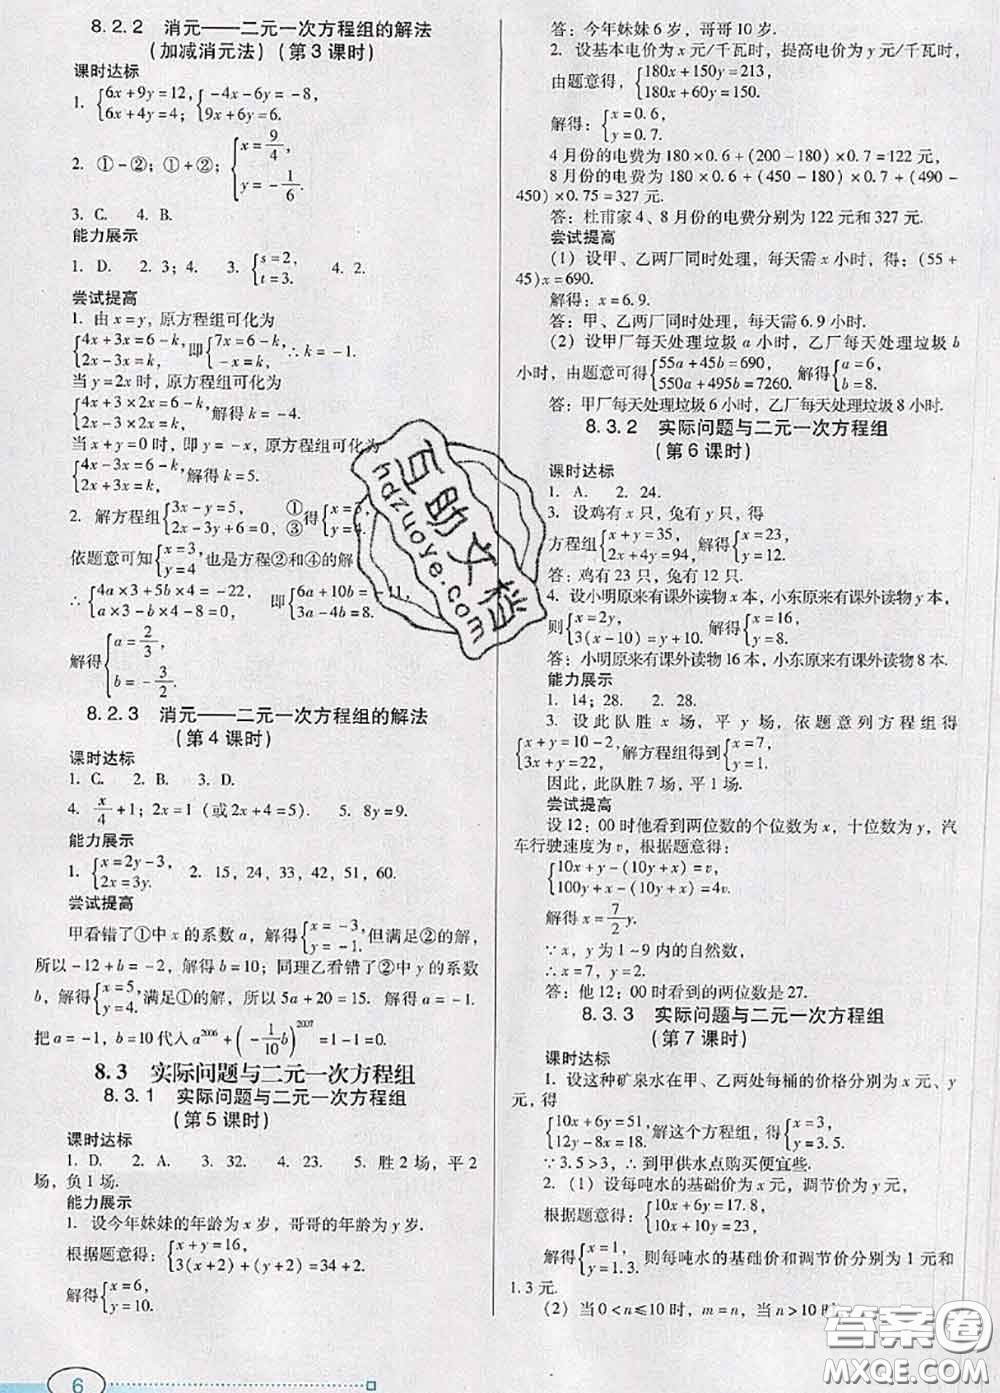 8.2.2 消元——二元一次方程组的解法
(加减消元法)(第3课时)
课时达标
1. {6x+9y=12, 6x+4y=4; {-4x-6y=-8, 9x+6y=6.
2. ①-②;①+②;{x=9/4, y=-1/6.
3. C. 4. B.
能力展示
1. D. 2. 3;4. 3. {s=2, t=3. 4. 2.
尝试提高
1. 由x=y,原方程组可化为
{4x+3x=6-k, 2x-3x=k, 即{7x=6-k, -x=k; ∴k=-1.
当y=2x时,原方程组可化为
{4x+3×2x=6-k, 2x-3×2x=k, 解得k=-4.
当x+y=0时,即y=-x,原方程组可化为
2. 解方程组{3x-y=5, ① 2x-3y+6=0, ③ 得{x=3, y=4.
依题意可知{x=3, y=4 也是方程②和④的解
∴{4a×3+5b×4=-22, a×3-b×4-8=0, 即{6a+10b=-11, 3a-4b=8.
解得{a=2/3, b=-3/2.
8.2.3 消元——二元一次方程组的解法
(第4课时)
课时达标
1. C. 2. B. 3. D.
4. x/4+1;2x=1(或2x+4=5). 5. 8y=9.
能力展示
1. {x=2y-3, 2x=3y. 2. 15,24,33,42,51,60.
尝试提高
甲看错了①中x的系数a,解得{x=-3, y=-1.但满足②的解,
所以-12+b=-2,解得b=10;同理乙看错了②中y的系数
b,解得{x=5, y=4.满足①的解,所以5a+20=15. 解得a=-1.
把a=-1,b=10代入a^2006+(-1/10 b)^2007=1-1=0.
8.3 实际问题与二元一次方程组
8.3.1 实际问题与二元一次方程组
(第5课时)
课时达标
1. D. 2. A. 3. 32. 4. 23. 5. 胜2场,平2
场,负1场.
能力展示
1. 设今年妹妹的年龄为x岁,哥哥的年龄为y岁.
根据题意得:{x+y=16, 3(x+2)+(y+2)=34+2.
解得{x=6, y=10.
6
答:今年妹妹6岁,哥哥10岁.
2. 设基本电价为x元/千瓦时,提高电价为y元/千瓦时,
由题意得:{180x+150y=213, 180x+60y=150.
解得:{x=0.6, y=0.7.
4月份的电费为180×0.6+(200-180)×0.7=122元,
8月份的电费为180×0.6+(450-180)×0.7+(490-
450)×0.75=327元.
答:杜甫家4、8月份的电费分别为122元和327元.
尝试提高
(1)设甲、乙两厂同时处理,每天需x小时,得:(55+
45)x=690.
解得:x=6.9.
答:甲、乙两厂同时处理,每天需6.9小时.
(2)设甲厂每天处理垃圾a小时,乙厂每天处理垃圾b
小时,由题意可得{55a+45b=690, 550a+495b=7260. 解得{a=6, b=8.
答:甲厂每天处理垃圾6小时,乙厂每天处理垃圾8小时.
8.3.2 实际问题与二元一次方程组
(第6课时)
课时达标
1. A. 2. 24.
3. 设鸡有x只,兔有y只,得
方程组{x+y=35, 2x+4y=94, 解得{x=23, y=12.
答:鸡有23只,兔有12只.
4. 设小明原来有课外读物x本,小东原来有课外读物y本,
则{x=2y, 3(x-10)=y+10. 解得{x=16, y=8.
答:小明原来有课外读物16本,小东原来有课外读物8本.
能力展示
1. 14;28. 2. 28.
3. 设此队胜x场,平y场,依题意列方程组得
{x+y=10-2, 3x+y=22, 解方程组得到{x=7, y=1.
因此,此队胜7场,平1场.
尝试提高
设12:00时他看到两位数的个位数为x,十位数为y,汽
车行驶速度为v,根据题意得:
{10x+y-(10y+x)=v, 100y+x-(10y+x)=4v.
解得x=7/2 y.
∵x,y为1~9内的自然数,
∴x=7,y=2.
答:他12:00时看到的两位数是27.
8.3.3 实际问题与二元一次方程组
(第7课时)
课时达标
1. 设这种矿泉水在甲、乙两处每桶的价格分别为x元、y
元,得
{10x+6y=51, 12y-8x=18. 解这个方程组,得{x=3, y=3.5.
∵3.5>3,∴到甲供水点购买便宜些.
2.(1)设每吨水的基础价为x元,调节价为y元,
根据题意得:{10x+6y=17.8, 10x+10y=23,
解得{x=1, y=1.3. 则每吨水的基础价和调节价分别为1元和
1.3元.
(2)当0<n≤10时,m=n,当n>10时
互助文档
hdzuoye.com
答案圈
MXQE.COM